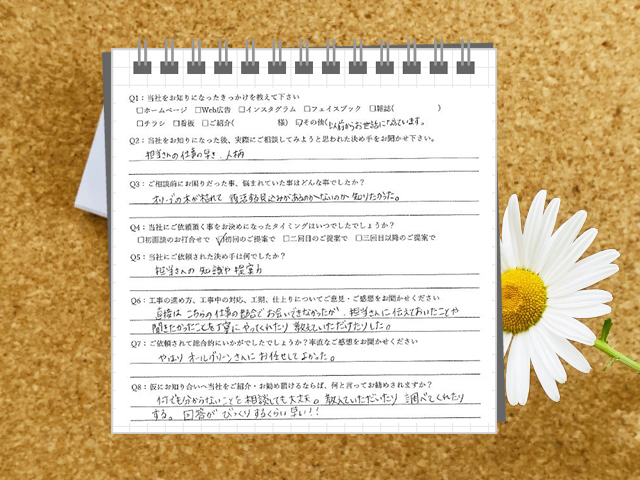 Q1：当社をお知りになったきっかけを教えて下さい
□ホームページ □Web広告 □インスタグラム □フェイスブック □雑誌( )
□チラシ □看板 □ご紹介( 様) ☑その他(以前からお世話になっています。
Q2：当社をお知りになった後、実際にご相談してみようと思われた決め手をお聞かせ下さい。
担当さんの仕事の早さ、人柄
Q3：ご相談前にお困りだった事、悩まれていた事はどんな事でしたか？
オリーブの木が枯れて 復活する見込みがあるのかないのか 知りたかった。
Q4：当社にご依頼頂く事をお決めになったタイミングはいつでしたでしょうか？
□初面談のお打合せで ☑初回のご提案で □二回目のご提案で □三回目以降のご提案で
Q5：当社にご依頼された決め手は何でしたか？
担当さんの 知識や 提案力
Q6：工事の進め方、工事中の対応、工期、仕上りについてご意見・ご感想をお聞かせください
直接は こちらの仕事の都合で お会いできなかったが、担当さんに伝えておいたことや
聞きたかったことを丁寧に やってくれたり 教えていただけたりした。
Q7：ご依頼されて総合的にいかがでしたでしょうか？率直なご感想をお聞かせください
やはり オールグリーンさんに お任せして よかった。
Q8：仮にお知り合いへ当社をご紹介・お勧め頂けるならば、何と言ってお勧めされますか？
何でも分からないことを 相談しても 大丈夫。教えていただいたり 調べてくれたり
する。 回答が びっくりするくらい 早い！！